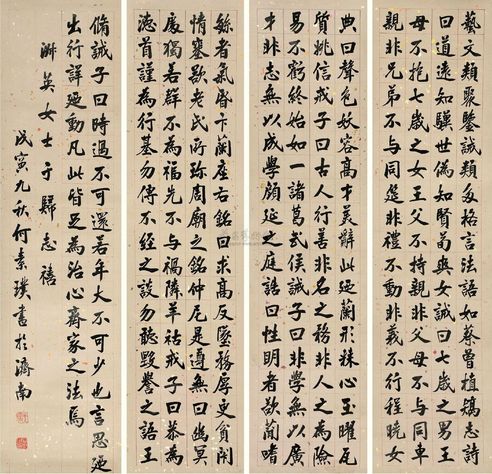 藝文類聚鑒誡類多格言法語如蔡曹植矯志詩
曰道遠知驥世偽知賢荀爽女誡曰七歲之男王
母不抱七歲之女王父不持親非父母不與同車
親非兄弟不與同筵非禮不動非義不行程曉女
典曰聲色妖容高才美辭此廼蘭形棘心玉曜瓦
質姚信戒子曰古人行善非名之務非人之為險
易不虧終始如一諸葛武侯誡子曰非學無以廣
才非志無以成學顏延之庭誥曰性明者欲蘭嗜
繇者氣昏卞蘭座右銘曰求高反墜務厚更貧閉
情塞欲老氏所珍周廟之銘仲尼是遵無曰幽冥
處獨若群不為福先不與禍隣羊祜戒子曰恭為
德首謹為行基勿傳不經之談勿聽毀譽之語王
脩誡子曰時過不可還若年大不可少也言思廼
出行詳廼動凡此皆足為治心齋家之法焉
英女士于歸志禧
戊寅九秋何素璞書於濟南